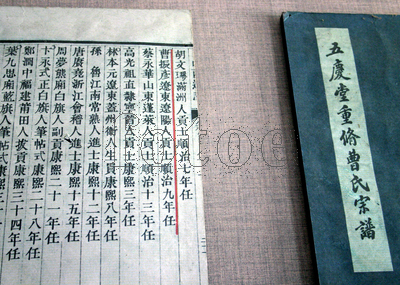 胡文燁滿洲人貢士順治七年任
曹振彥遼東遼陽人貢士順治九年任
蔡永華山東蓬萊人貢士順治十三年任
高光祖直隸寧晉人貢士康熙三年任
林本元遼東蓋州衛人生員康熙八年任
孫魯江南常熟人進士康熙十二年任
唐賡堯浙江會稽人進士康熙十五年任
周夢熊廂白旗人副貢康熙二十年任
卞永式正白旗人筆帖式康熙二十八年任
鄭潤中福建莆田人拔貢康熙三十四年任
葉九思廂藍旗人筆帖式康熙三
五慶堂重修曹氏宗譜